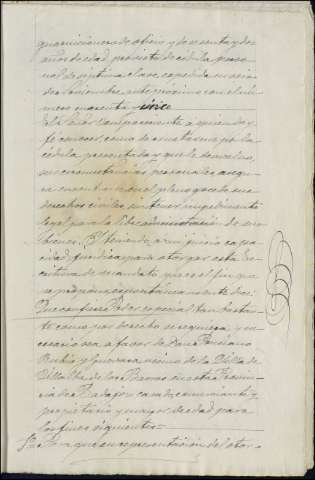 guarnicionero de oficio, y de sesenta y dos
años de edad, provisto de cédula perso-
nal de séptima clase, expedida en cinco
de Noviembre ante próximo con el nú-
mero cuarenta cinco
de la edad también cuenta a quien doy
fé conocer, como de su estado por la
cédula presentada y que le devuelvo,
sus circunstancias personales asegu-
ra encontrarse en el pleno goce de sus
derechos civiles sin tener impedimento
legal para la libre administración de sus
bienes. Y teniendo a mi juicio capa-
cidad jurídica para otorgar esta Es-
critura de mandato, que es el fin que
se propone espontáneamente dice:
Que confiere Poder especial tan bastan-
te como por derecho se requiera, y ne-
cesario sea, a favor de Don Ponciano
Rubio y Guevara vecino de la Villa de
Villalba de los Barros en esta Provin-
cia de Badajoz casado, comerciante y
propietario y mayor de edad para
los fines siguientes
1º Para que en representación del otor-